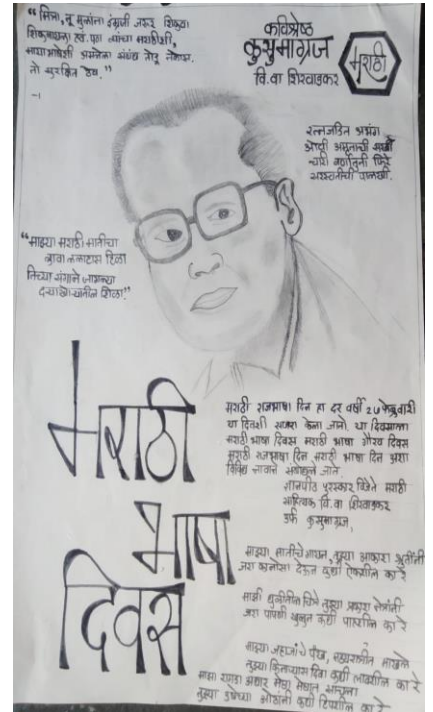 “मित्रा, तू मुलांना इंग्रजी जरूर शिकवा
मराठीशी,
तो सुरक्षित ठेव.”
कविश्रेष्ठ
कुसुमाग्रज
वि. वा शिरवाडकर
मराठी
रत्नजडित अभंग
ओवी अमृताची सखी
चारी वर्णातुनी फिरे
सरस्वतीची पालखी.
“माझ्या मराठी मातीचा
लावा ललाटास टिळा
तिच्या संगाने जागल्या
दऱ्याखोऱ्यातील शिळा.”
मराठी
भाषा
दिवस
मराठी राजभाषा दिन हा दर वर्षी 27 फेब्रुवारी
या दिवशी साजरा केला जातो. या दिवसाला
मराठी भाषा दिवस मराठी भाषा गौरव दिवस
मराठी राजभाषा दिन मराठी भाषा दिन अशा
विविध नावाने संबोधले जाते.
ज्ञानपीठ पुरस्कार विजेते मराठी
साहित्यिक वि. वा शिरवाडकर
उर्फ कुसुमाग्रज,
माझ्या मातीचे गायन, तुझ्या आकाश श्रुतींनी
जरा कानोसा देऊन कधी ऐकशील का रे
माझी धुळीतील चित्रे तुझ्या प्रकाश नेत्रांनी
जरा पापणी खुलून कधी पाहशील का रे
माझ्या जहाजांचे पंख,
तुझ्या किनाऱ्यास दिवा कधी लावशील का रे
माझा रांगडा अंधार मेघा मेघात साचला
तुझ्या उषेच्या ओठांनी कधी टिपशील का रे